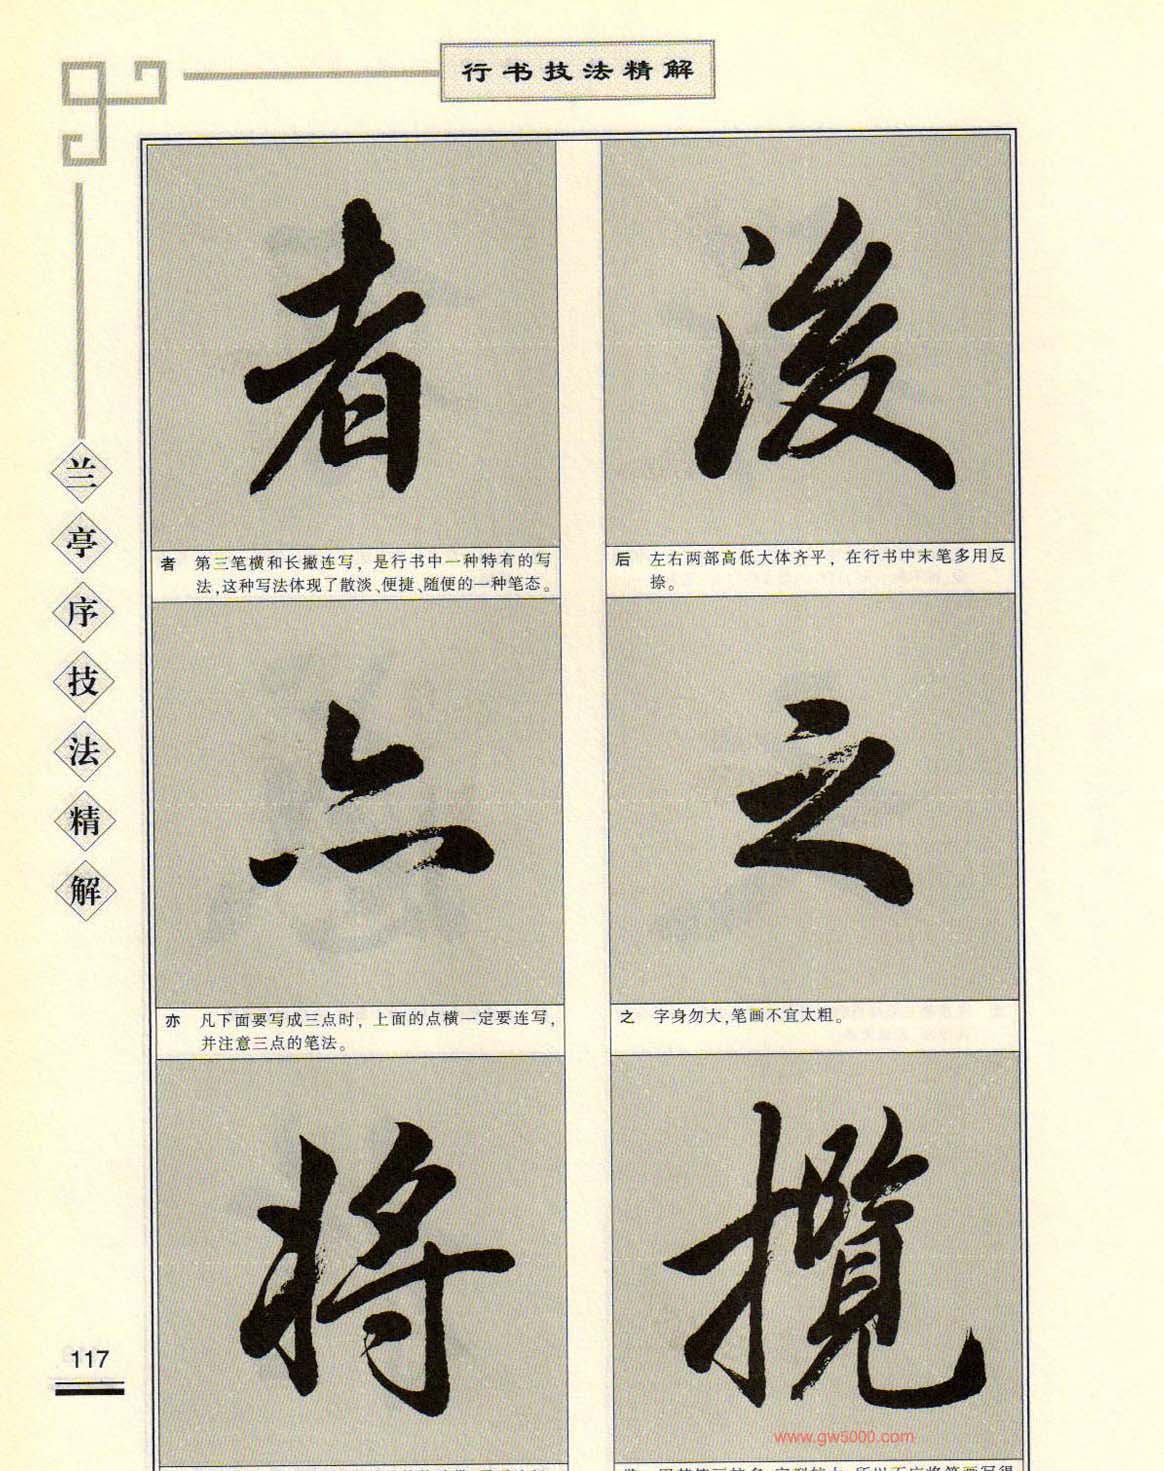 行书技法精解
兰亭序技法精解
後
后 左右两部高低大体齐平，在行书中末笔多用反
捺。
之
之 字身勿大，笔画不宜太粗。
揽
者
者 第三笔横和长撇连写，是行书中一种特有的写
法，这种写法体现了散淡、便捷、随便的一种笔态。
亦
亦 凡下面要写成三点时，上面的点横一定要连写，
并注意三点的笔法。
将
117
www.gw5000.com